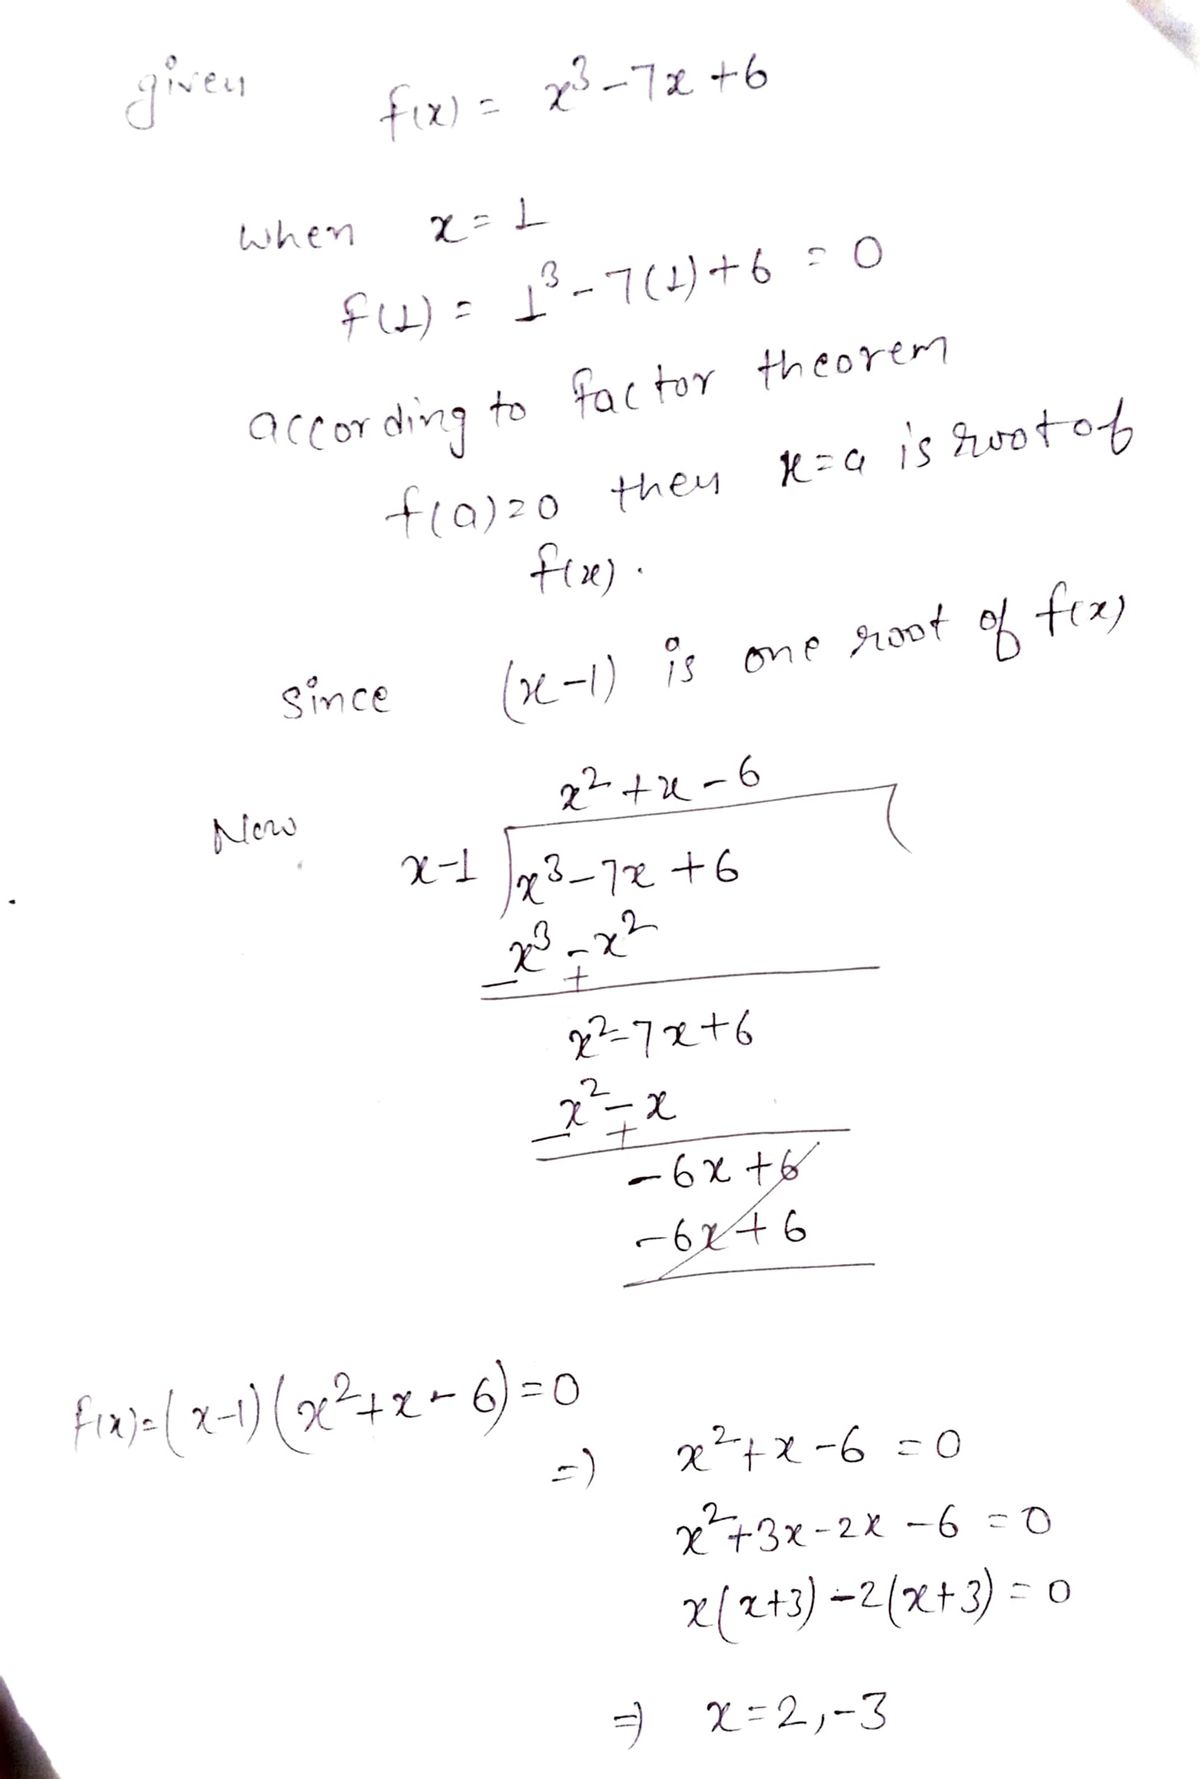 given f(x) = x³-7x+6
when x=1
f(1) = 1³-7(1)+6 = 0
according to factor theorem
f(a)=0 then x=a is root of
f(x).
since (x-1) is one root of f(x)
x²+x-6
Now x-1 x³-7x+6
x³-x²
- +
x²-7x+6
x²-x
- +
-6x+6
-6x+6
f(x)=(x-1)(x²+x-6)=0
=) x²+x-6 =0
x²+3x-2x-6 =0
x(x+3)-2(x+3)=0
=) x=2,-3